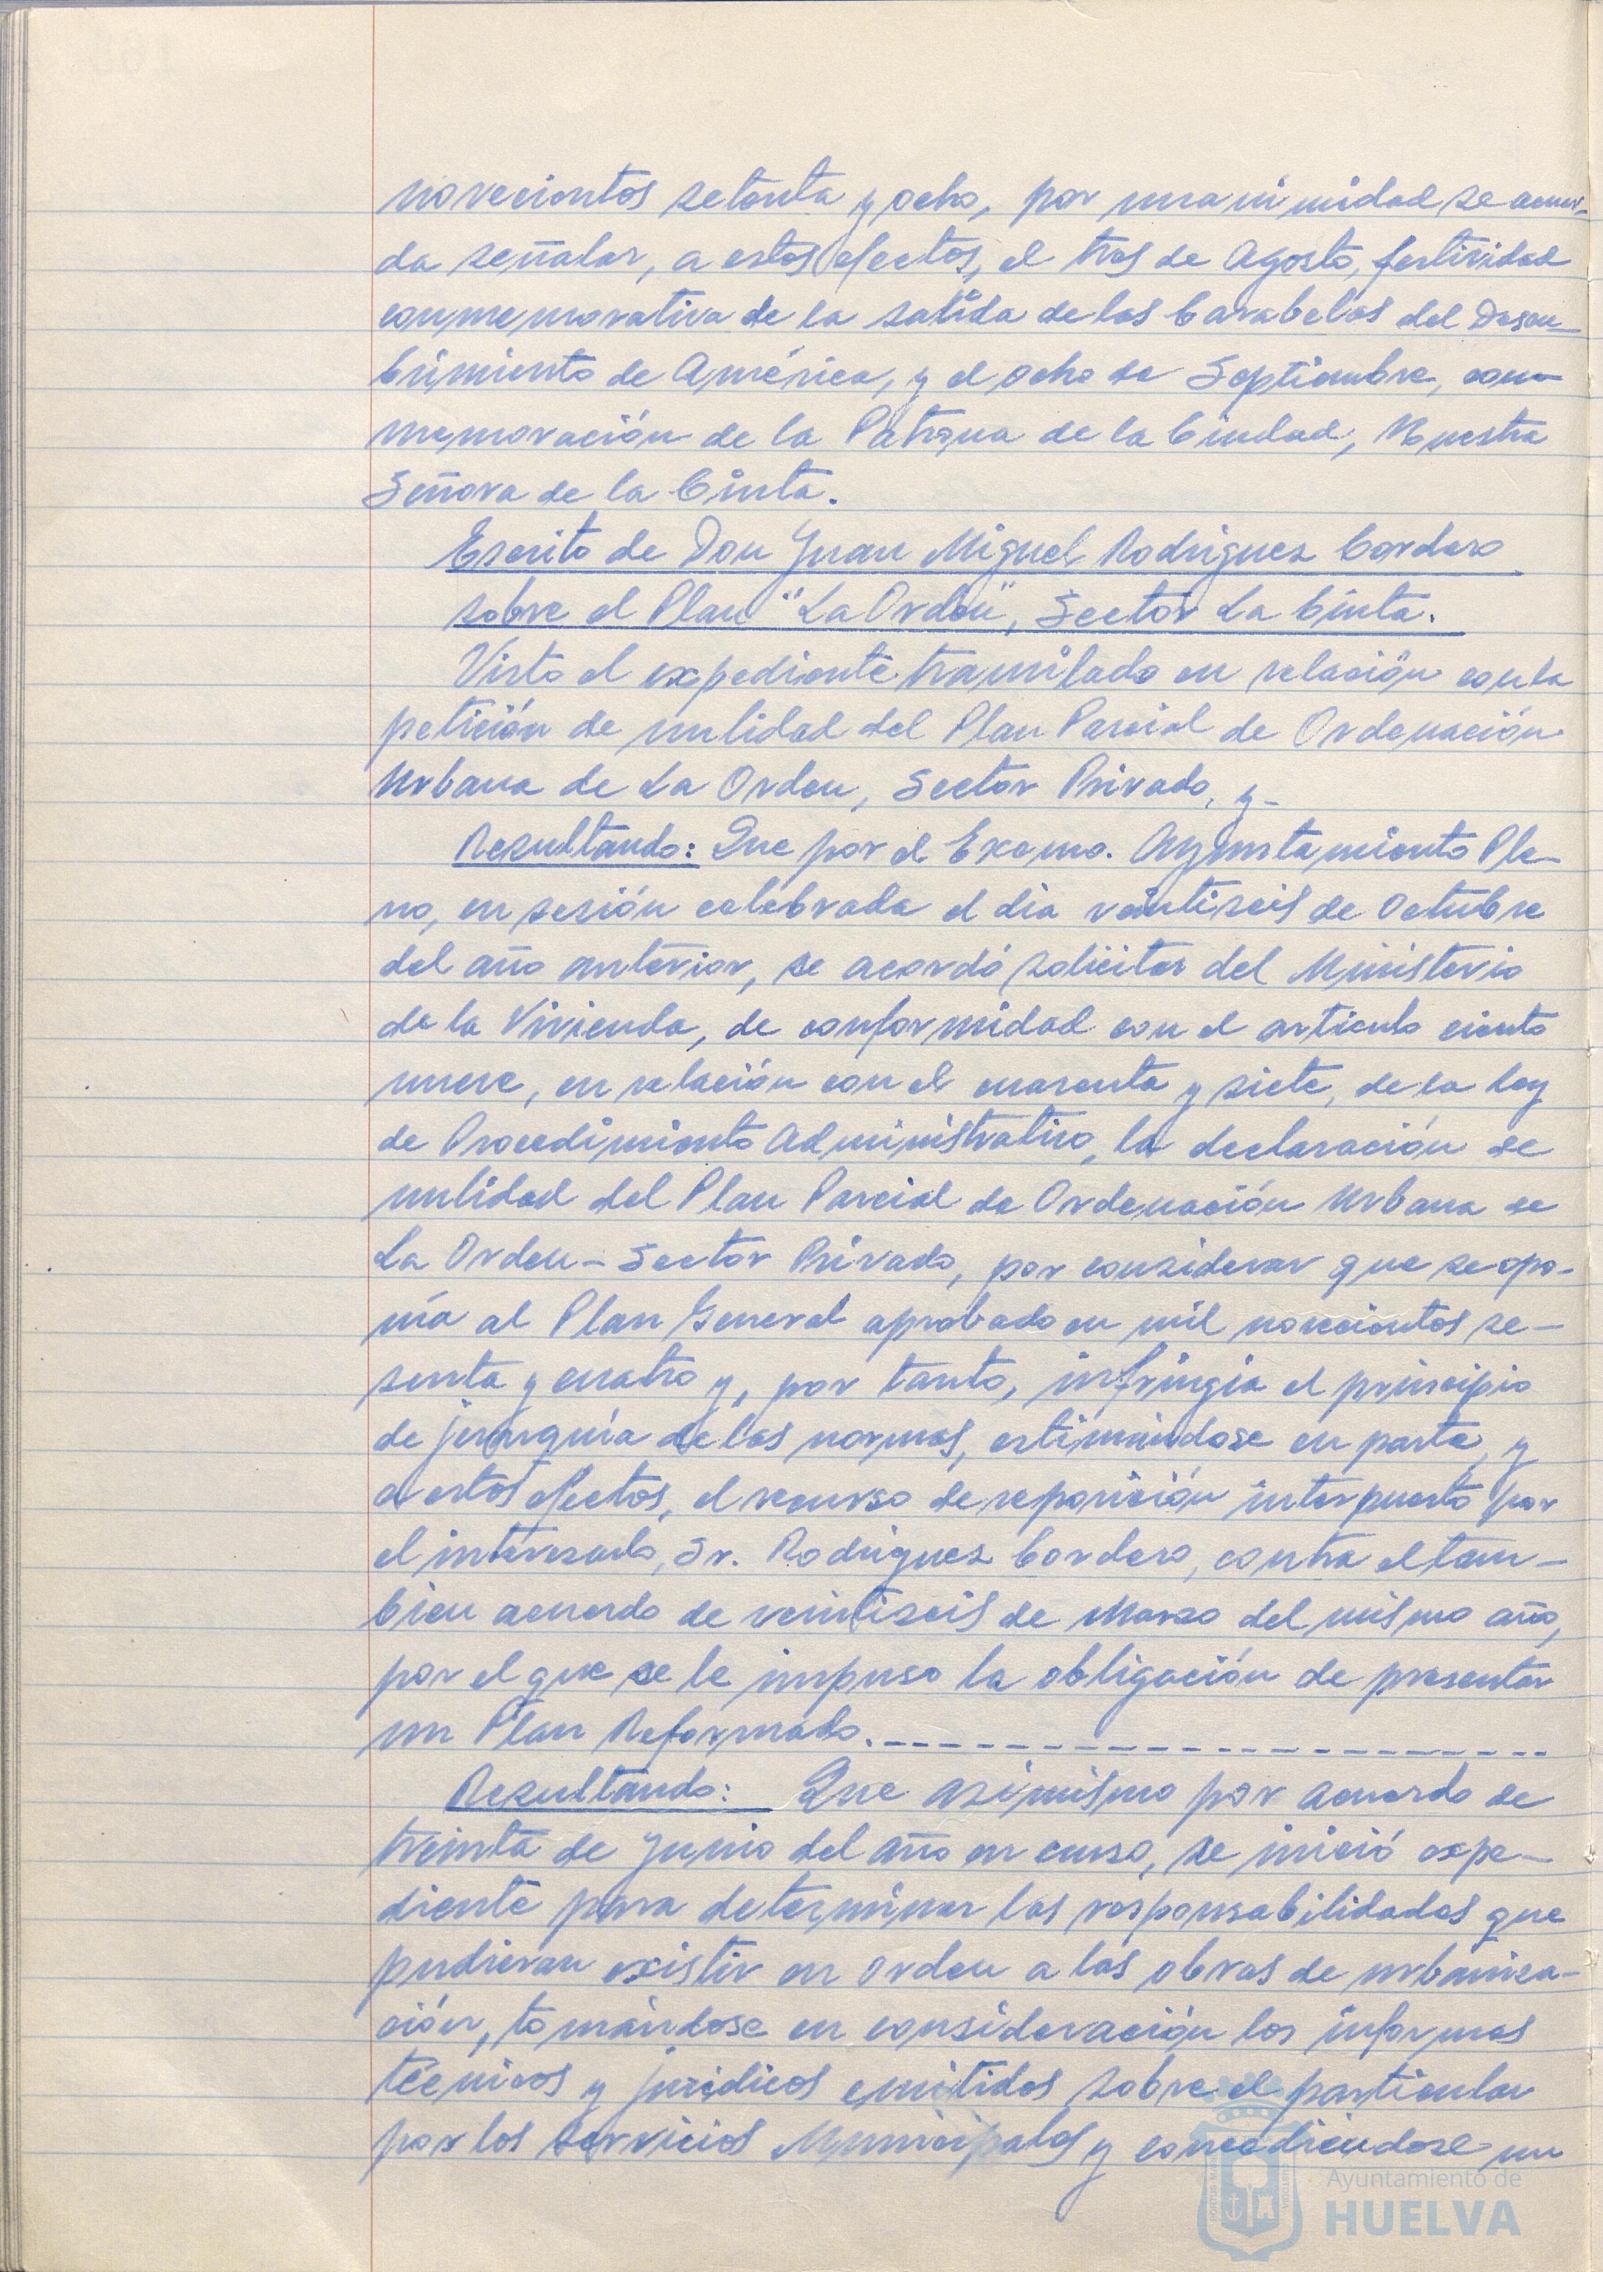 novecientos setenta y ocho, por unanimidad se acuer-
da señalar, a estos efectos, el tres de Agosto, festividad
conmemorativa de la salida de las Carabelas del Descu-
brimiento de América, y el ocho de Septiembre, con-
memoración de la Patrona de la Ciudad, Nuestra
Señora de la Cinta.
Escrito de Don Juan Miguel Rodriguez Cordero
sobre el Plan "La Orden", Sector La Cinta.
Visto el expediente tramitado en relación con la
petición de nulidad del Plan Parcial de Ordenación
Urbana de La Orden, Sector Privado, y-
Resultando: Que por el Excmo. Ayuntamiento Ple-
no, en sesión celebrada el dia veintiseis de Octubre
del año anterior, se acordó solicitar del Ministerio
de la Vivienda, de conformidad con el articulo ciento
nueve, en relación con el cuarenta y siete, de la Ley
de Procedimiento Administrativo, la declaración de
nulidad del Plan Parcial de Ordenación Urbana de
La Orden - Sector Privado, por considerar que se opo-
nía al Plan General aprobado en mil novecientos se-
senta y cuatro y, por tanto, infringia el principio
de jerarquía de las normas, estimándose en parte, y
a estos efectos, el recurso de reposición interpuesto por
el interesado, Sr. Rodriguez Cordero, contra el tam-
bien acuerdo de veintiseis de Marzo del mismo año,
por el que se le impuso la obligación de presentar
un Plan Reformado.-----------------------
Resultando: Que asimismo por acuerdo de
treinta de Junio del año en curso, se inició expe-
diente para determinar las responsabilidades que
pudieran existir en orden a las obras de urbaniza-
ción, tomándose en consideración los informes
técnicos y jurídicos emitidos sobre el particular
por los Servicios Municipales y concediendose un
Ayuntamiento de
HUELVA